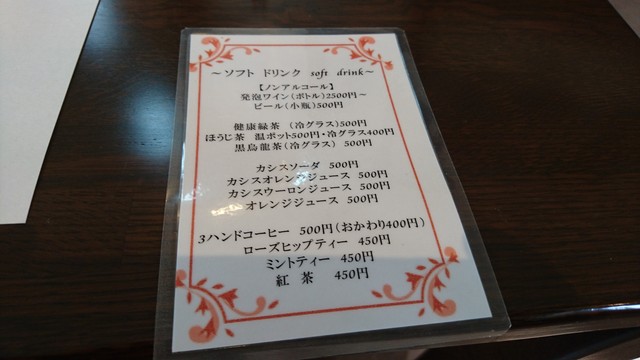 ～ソフト ドリンク soft drink～
【ノンアルコール】
発泡ワイン（ボトル）2500円～
ビール（小瓶）500円
健康緑茶 （冷グラス）500円
ほうじ茶 温ポット500円・冷グラス400円
黒烏龍茶（冷グラス） 500円
カシスソーダ 500円
カシスオレンジジュース 500円
カシスウーロンジュース 500円
オレンジジュース 500円
3ハンドコーヒー 500円（おかわり400円）
ローズヒップティー 450円
ミントティー 450円
紅 茶 450円